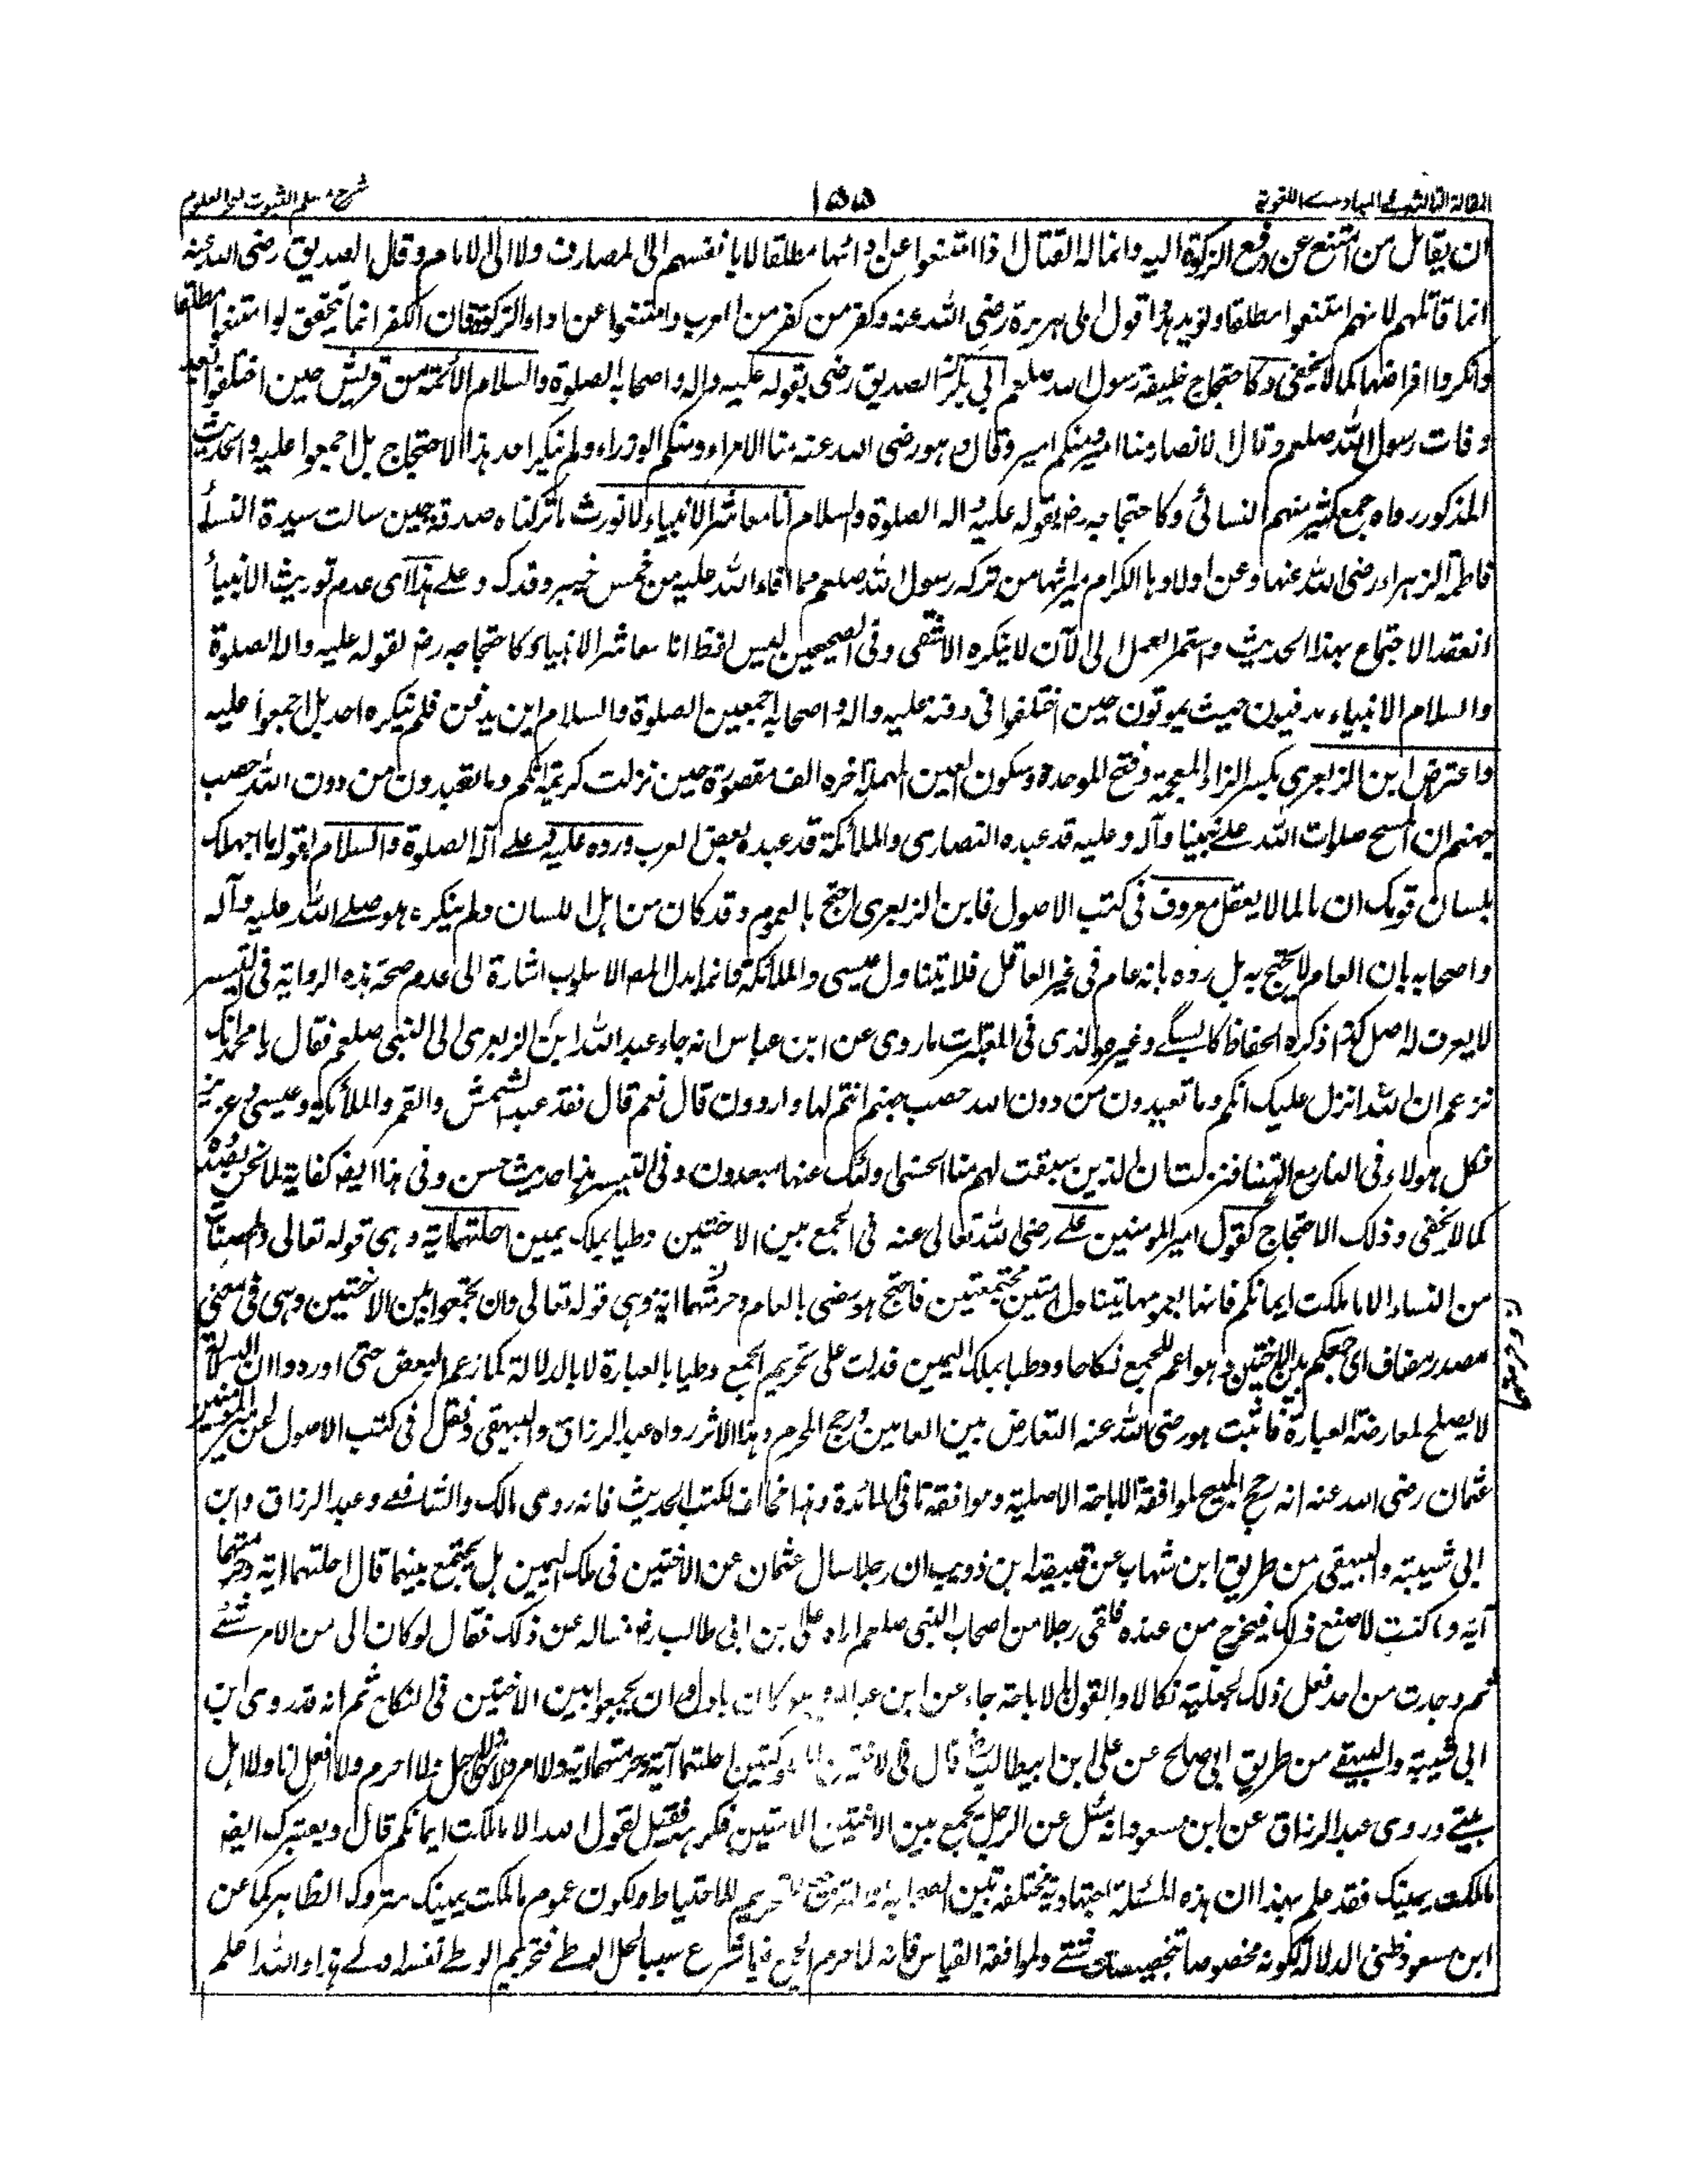 المقالة الثالثة فى المبادى اللغوية ١٥٥ شرح مسلم الثبوت لبحر العلوم
ان يقاتل من امتنع عن دفع الزكوة اليه وانما له القتال اذا امتنعوا عن ادائها مطلقا لا بانفسهم الى المصارف ولا الى الامام وقال الصديق رضى الله عنه
انما قاتلهم لانهم امتنعوا مطلقا ويؤيد هذا قول ابى هريرة رضى الله عنه وكفر من كفر من العرب وامتنعوا عن اداء الزكوة فان الكفر انما يتحقق لو امتنعوا مطلقا
وانكروا افتراضها كما لا يخفى وكاحتجاج خليفة رسول الله صلعم ابى بكر الصديق رضى بقوله عليه واله واصحابه الصلوة والسلام الائمة من قريش حين اختلفوا بعد
وفات رسول الله صلعم وقال الانصار منا امير ومنكم امير وقال هو رضى الله عنه منا الامراء ومنكم الوزراء ولم ينكر احد هذا الاحتجاج بل اجمعوا عليه والحديث
المذكور رواه جمع كثير منهم النسائى وكاحتجاجه رض بقوله عليه واله الصلوة والسلام انا معاشر الانبياء لا نورث ما تركناه صدقة حين سالت سيدة النساء
فاطمة الزهراء رضى الله عنها وعن اولادها الكرام ميراثها من تركه رسول الله صلعم مما افاء الله عليه من خمس خيبر وفدك وعلى هذا اى عدم توريث الانبياء
انعقد الاجماع بهذا الحديث واستمر العمل الى الآن لا ينكره الا شقى وفى الصحيحين ليس لفظ انا معاشر الانبياء وكاحتجاجه رض لقوله عليه واله الصلوة
والسلام الانبياء يدفنون حيث يموتون حين اختلفوا فى دفنه عليه واله واصحابه اجمعين الصلوة والسلام اين يدفن فلم ينكره احد بل اجمعوا عليه
واعترض ابن الزبعرى بكسر الزاء المعجمة وفتح الموحدة وسكون العين المهملة اخره الف مقصورة حين نزلت كريمة انكم وما تعبدون من دون الله حصب
جهنم ان المسيح صلوات الله على نبينا وآله وعليه قد عبده النصارى والملائكة قد عبده بعض العرب ورده عليه وعلى آله الصلوة والسلام بقوله ما اجهلك
بلسان قومك ان ما لما لا يعقل معروف فى كتب الاصول فابن الزبعرى احتج بالعموم وقد كان من اهل اللسان ولم ينكره هو صلى الله عليه وآله
واصحابه بان العام لا يحتج به بل رده بانه عام فى غير العاقل فلا يتناول عيسى والملائكة وانما بدل المص الاسلوب اشارة الى عدم صحة هذه الرواية فى التيسير
لا يعرف له اصل كذا ذكره الحفاظ كالسبكى وغيره والذى فى المعتبرات ما روى عن ابن عباس انه جاء عبد الله ابن الزبعرى الى النبى صلعم فقال يا محمد انك
تزعم ان الله انزل عليك انكم وما تعبدون من دون الله حصب جهنم انتم لها واردون قال نعم قال فقد عبد الشمس والقمر والملائكة وعيسى وعزير
فكل هولاء فى النار مع الهتنا فنزلت ان الذين سبقت لهم منا الحسنى اولئك عنها مبعدون وفى التيسير هذا حديث حسن وفى هذا ايضا كفاية لما نحن بصدده
كما لا يخفى وذلك الاحتجاج كقول امير المومنين على رضى الله تعالى عنه فى الجمع بين الاختين وطيا بملك يمين احلتهما اية وهى قوله تعالى والمحصنات
من النساء الا ما ملكت ايمانكم فانها بعمومها يتناول امتين مجتمعتين فاحتج هو رضى بالعام وحرمتهما اية وهى قوله تعالى وان تجمعوا بين الاختين وهى فى معنى
مصدر مضاف اى جمعكم بين الاختين وهو اعم للجمع نكاحا ووطيا بملك اليمين فدلت على تحريم الجمع وطيا بالعبارة لا بالدلالة كما زعم البعض حتى اوردوا ان الدلالة
لا يصلح لمعارضة العبارة فاثبت هو رضى الله عنه التعارض بين العامين ورجح المحرم وهذا الاثر رواه عبد الرزاق والبيهقى ونقل فى كتب الاصول عن امير المومنين
عثمان رضى الله عنه انه رجح المبيح لموافقة الاباحة الاصلية وموافقة ما فى المائدة وهذا مخالف لكتب الحديث فانه روى مالك والشافعى وعبد الرزاق وابن
ابى شيبة والبيهقى من طريق ابن شهاب عن قبيصة ابن ذويب ان رجلا سال عثمان عن الاختين فى ملك اليمين هل يجتمع بينهما قال احلتهما اية وحرمتهما
آية وما كنت لاصنع ذلك فيخرج من عنده فلقى رجلا من اصحاب النبى صلعم اراه على بن ابى طالب رض فساله عن ذلك فقال لو كان الى من الامر شئ
ثم وجدت من احد فعل ذلك لجعلته نكالا والقول بالاباحة جاء عن ابن عباس وهو كان ياول وان يجمعوا بين الاختين فى النكاح ثم انه قد روى ابن
ابى شيبة والبيهقى من طريق ابى صالح عن على ابن ابيطالب قال فى الاختين المملوكتين احلتهما آية وحرمتهما اية ولا امر ولا انهى ولا احل ولا احرم ولا افعل انا ولا اهل
بيتى وروى عبد الرزاق عن ابن مسعود انه سئل عن الرجل يجمع بين الاختين الامتين فكرهه فقيل لقول الله الا ما ملكت ايمانكم قال وبعيرك ايضا
ما ملكت يمينك فقد علم بهذا ان هذه المسئلة اجتهادية مختلفة بين الصحابة والتحريم للاحتياط ولكون عموم ما ملكت يمينك متروك الظاهر كما عن
ابن مسعود ظنى الدلالة لكونه مخصوصا بتخصيصات شتى ولموافقة القياس فانه لما حرم الجمع فيما شرع سببا لحل الوطى فتحريم الوطى نفسه اولى هذا والله اعلم